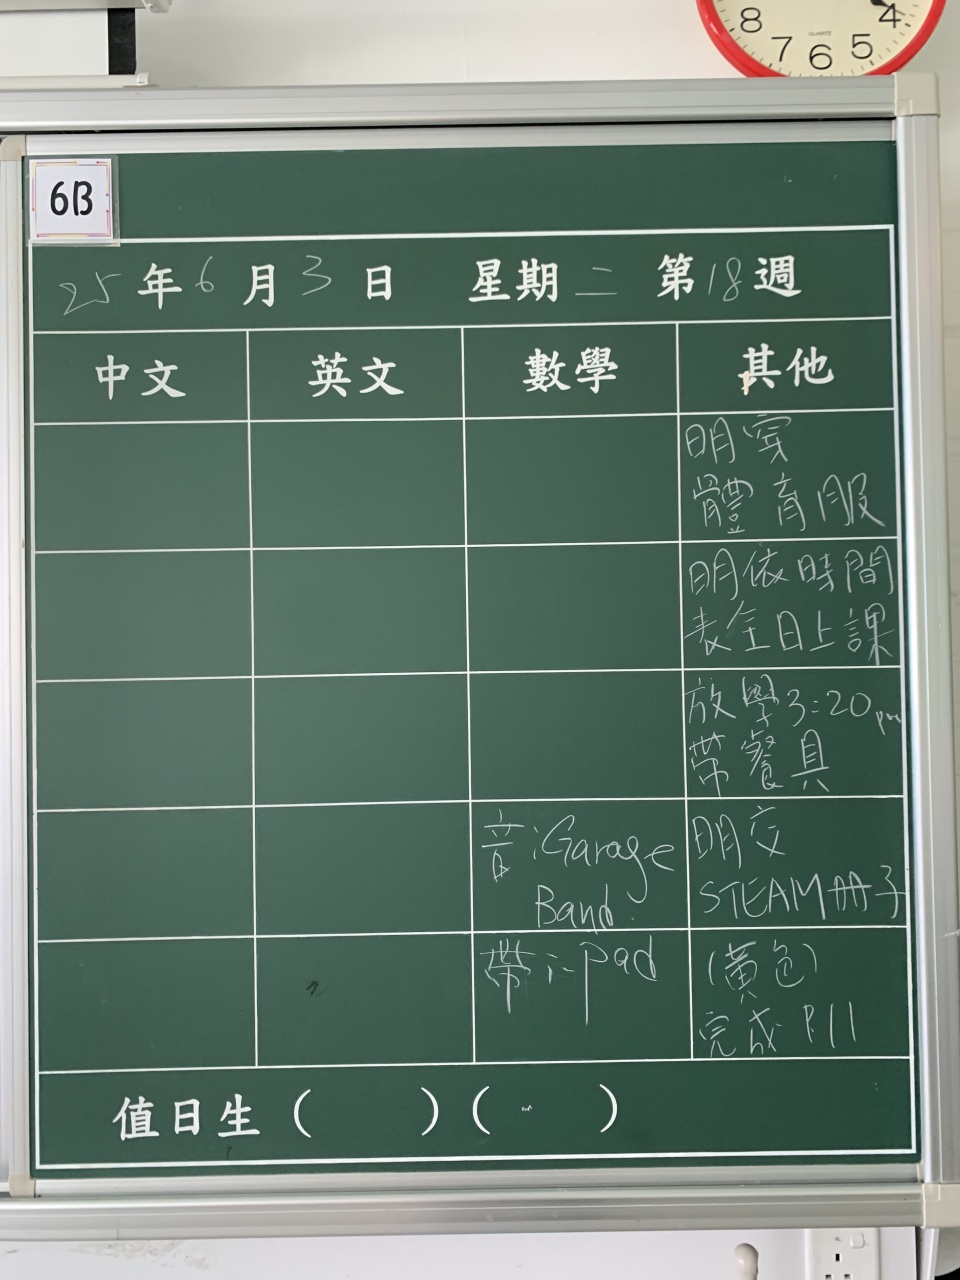 8 7 6 5 4
QUARTZ
6B
25年6月3日 星期二 第18週
中文 英文 數學 其他
明穿
體育服
明依時間
表全日上課
放學3:20pm
帶餐具
音:Garage
Band.
明交
STEAM冊子
帶i-pad
(黃色)
完成P.11
值日生( )( )